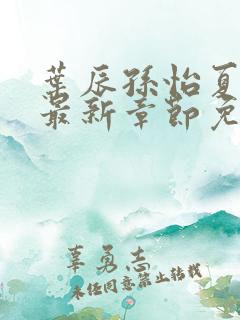 叶辰孙怡夏
最新章节免
辜勇志
未经同意禁止转载